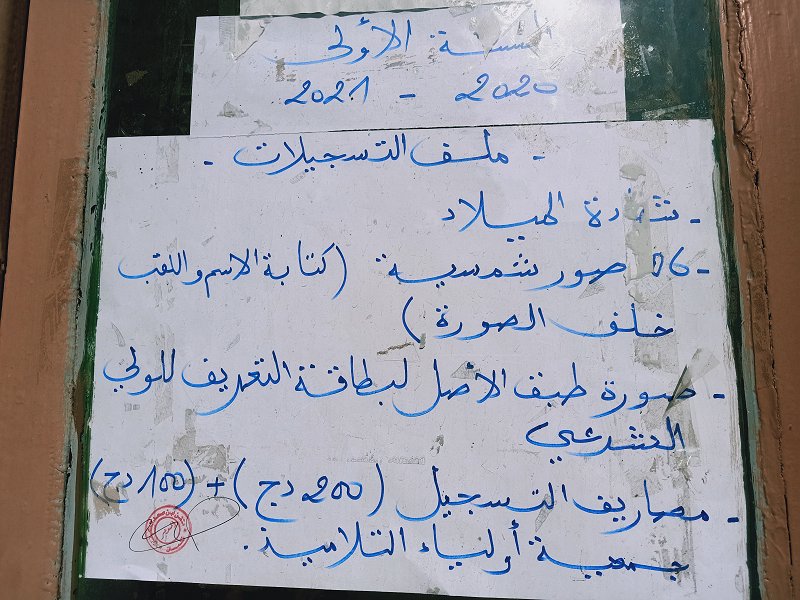 السنة الأولى
2020 - 2021
- ملف التسجيلات -
- شهادة الميلاد
- 06 صور شمسية (كتابة الاسم واللقب
خلف الصورة)
- صورة طبق الأصل لبطاقة التعريف للولي
الشرعي
- مصاريف التسجيل (200 دج) + (100 دج)
جمعية أولياء التلاميذ.